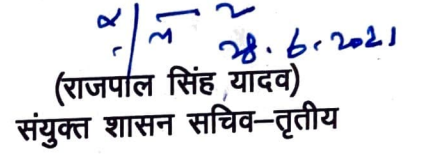 28.6.2021
(राजपाल सिंह यादव)
संयुक्त शासन सचिव–तृतीय